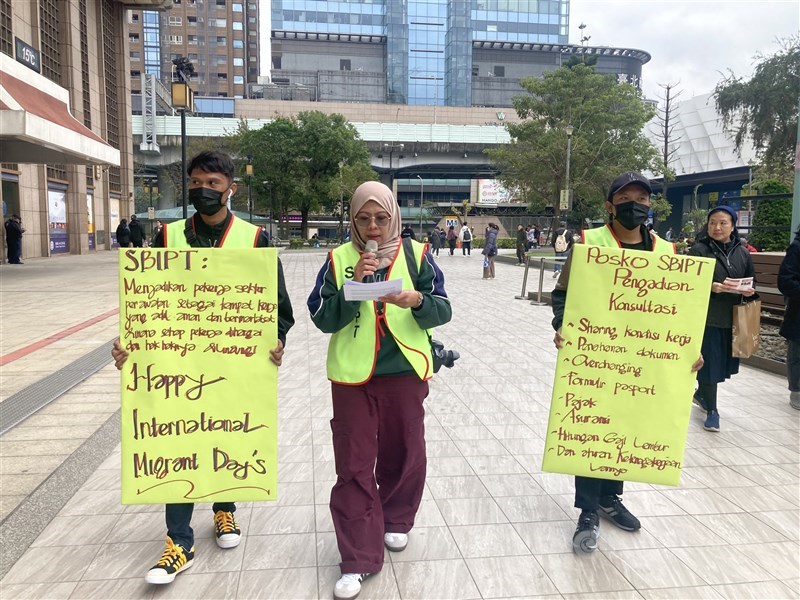 15°C
SBIPT:
Menjadikan pekerja sektor
perawatan sebagai tempat kerja
yang adil aman dan bermartabat
dimana setiap pekerja dihargai
dan hak haknya dilindungi
Happy
International
Migrant Day's
S
PT
Posko SBIPT
Pengaduan
Konsultasi
- Sharing kondisi kerja
- Penahanan dokumen
- Overcharging
- Formulir pasport
- Pajak
- Asuransi
- Hitungan Gaji Lembur
- Dan aturan Ketenagakerjaan
Lainnya